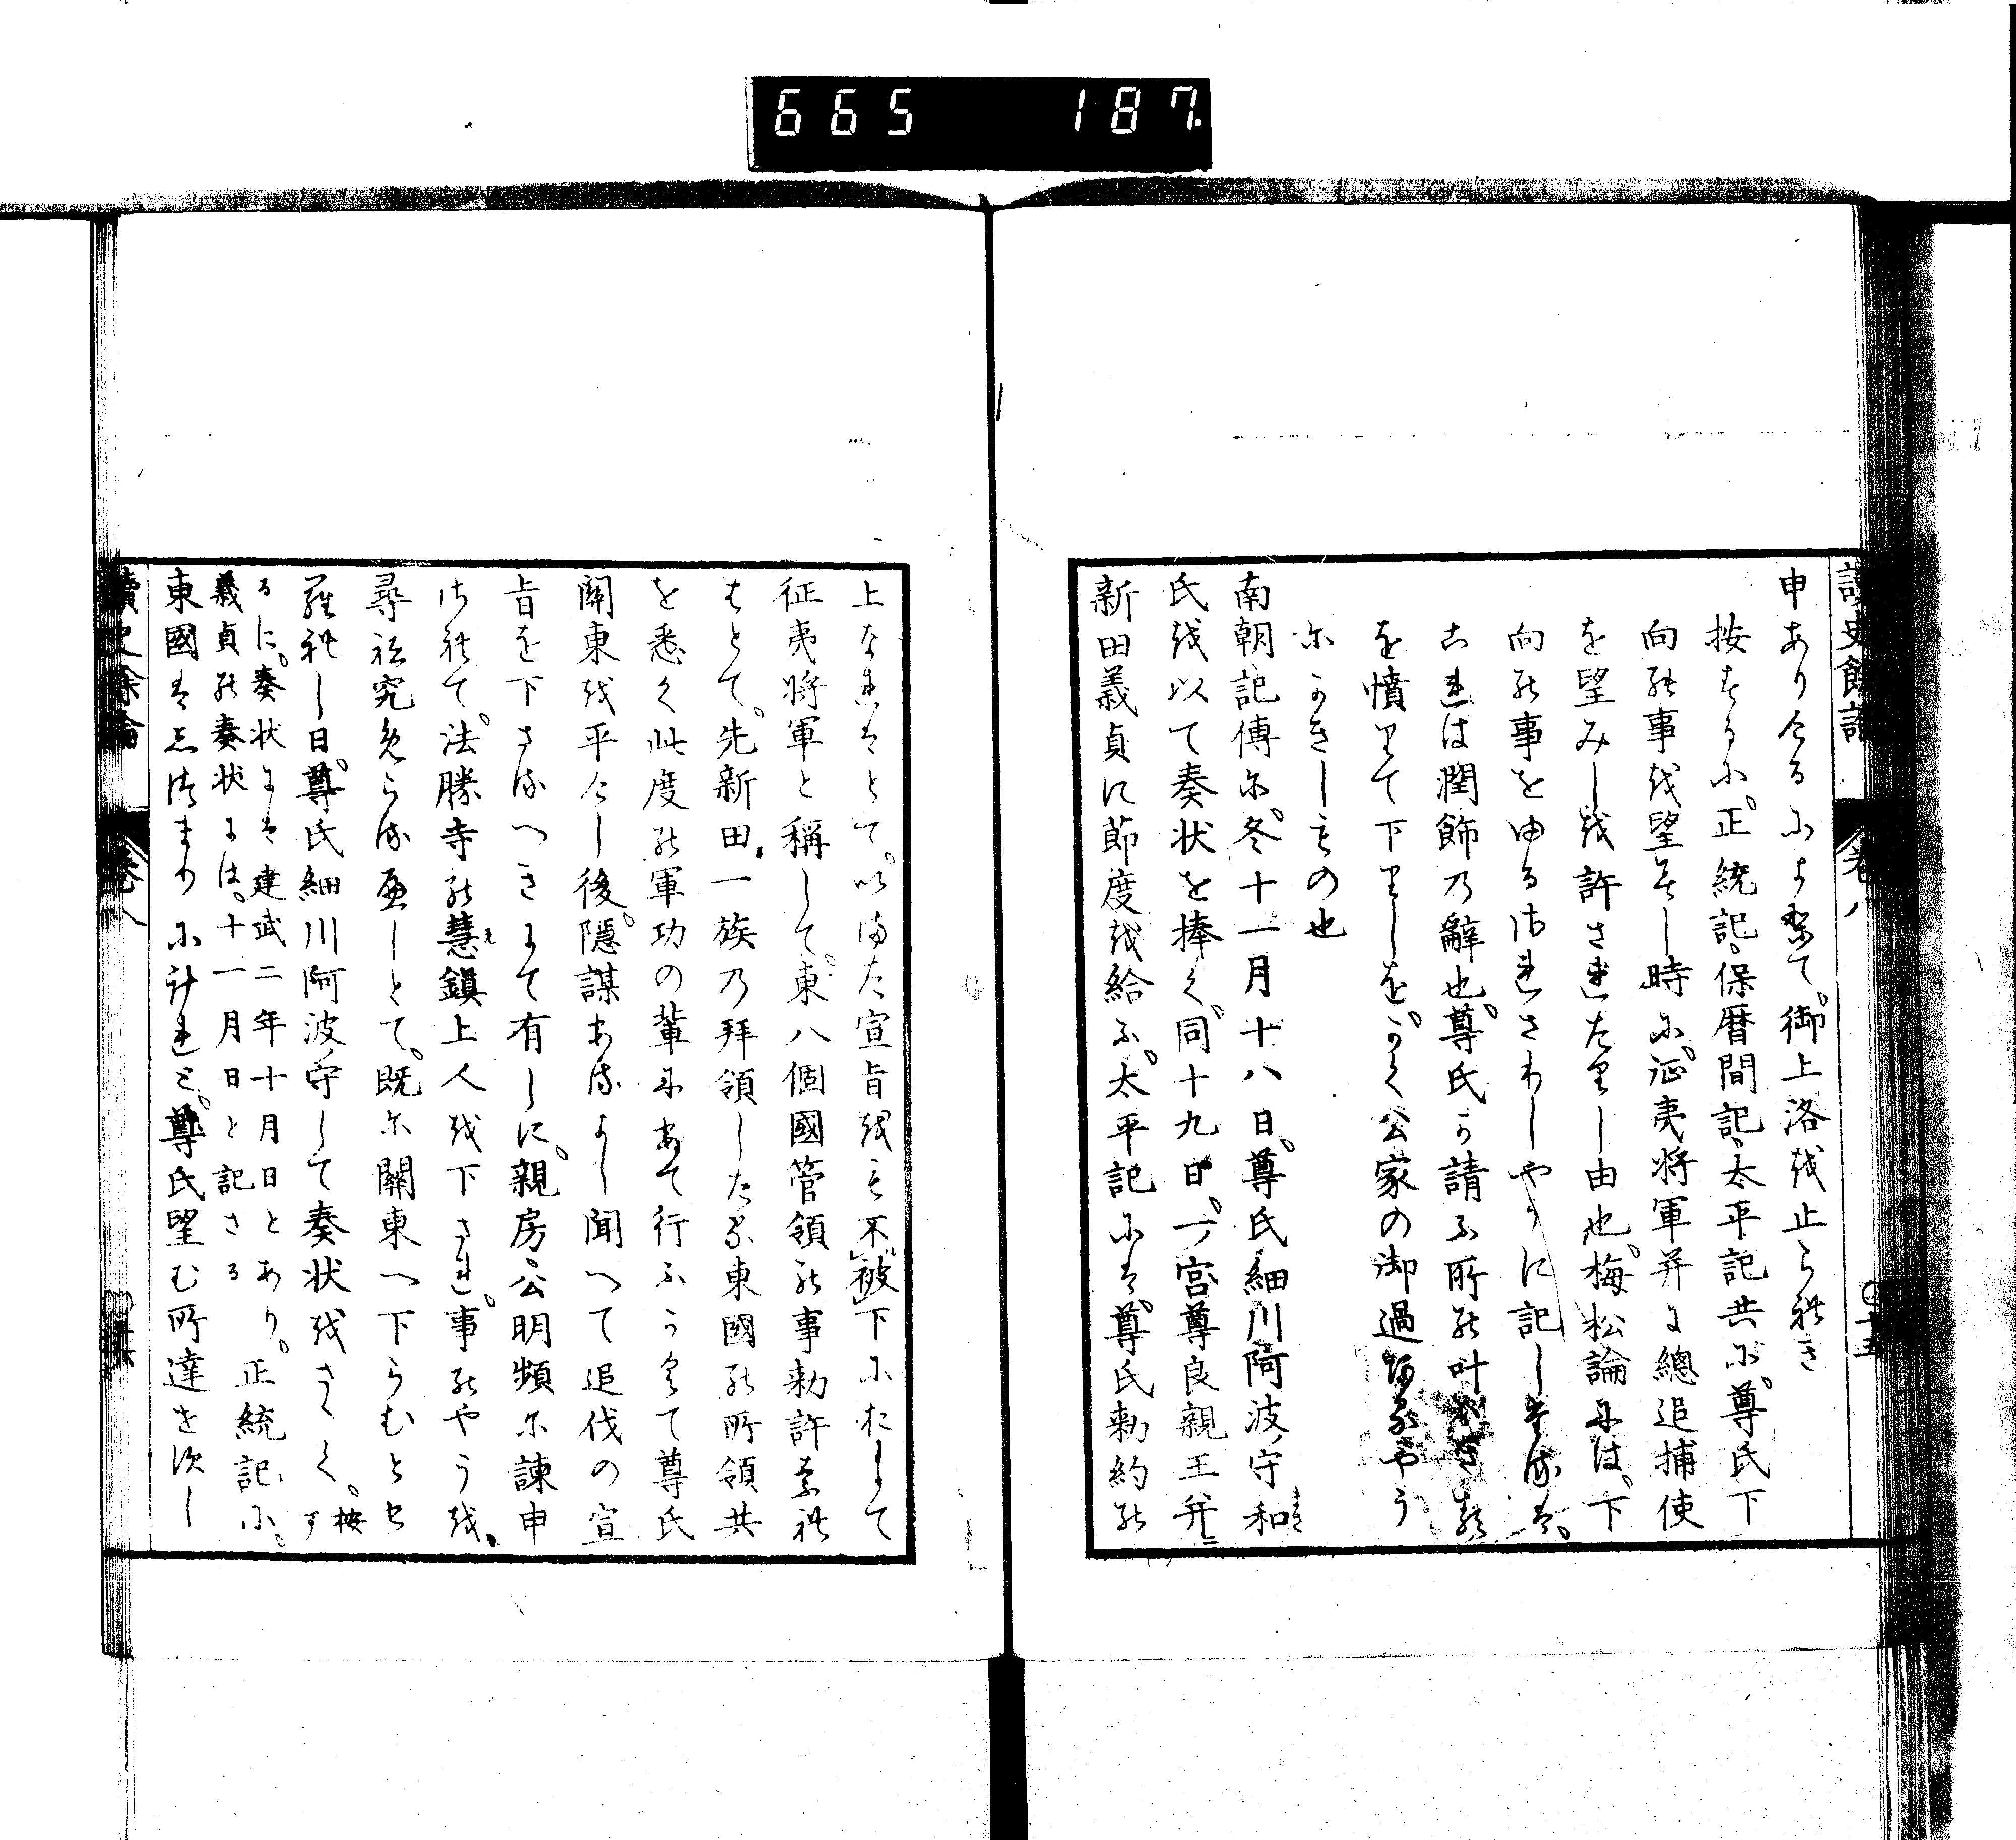 665 187.
讀史餘論 卷八 ○二十五
申ありけるによりて。御上洛を止られき
按するに。正統記。保暦間記。太平記共に。尊氏下
向の事を望みし時に。征夷将軍并に總追捕使
を望みしを許されたりし由也。梅松論には。下
向の事をゆるされさりしやうに記しぬるは。
これは潤飾の辭也。尊氏か請ふ所の叶
を憤りて下りしを。かく公家の御過のやう
にかきしもの也
南朝記傳に。冬十一月十八日。尊氏細川阿波守和
氏を以て奏状を捧く。同十九日。一宮尊良親王并ニ
新田義貞に節度を給ふ。太平記には。尊氏勅約の
上なれはとて。いまた宣旨をも不被下におして
征夷将軍と稱して。東八個國管領の事勅許なれ
はとて。先新田一族乃拜領したる東國の所領共
を悉く此度の軍功の輩にあて行ふかくて尊氏
關東を平けし後。隠謀あるよし聞へて追伐の宣
旨を下さるへきにて有しに。親房公明頻に諫申
されて。法勝寺の慧鎮上人を下され。事のやうを
尋ね究めらるへしとて。既に關東へ下らむとせ
られし日。尊氏細川阿波守して奏状をさゝく。按す
るに。奏状には建武二年十月日とあり。正統記に。
義貞の奏状には。十一月日と記さる
東國はしつまりにけれと。尊氏望む所達せすし
讀史餘論 卷八